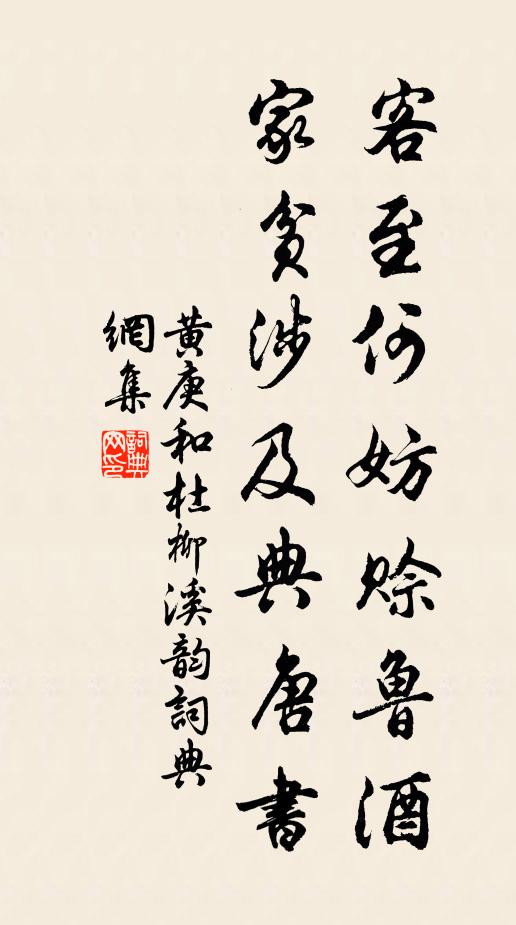 客至何妨赊魯酒
家貧涉及典唐書
黄庚和杜柳溪韵詞典
網集
詞典网印